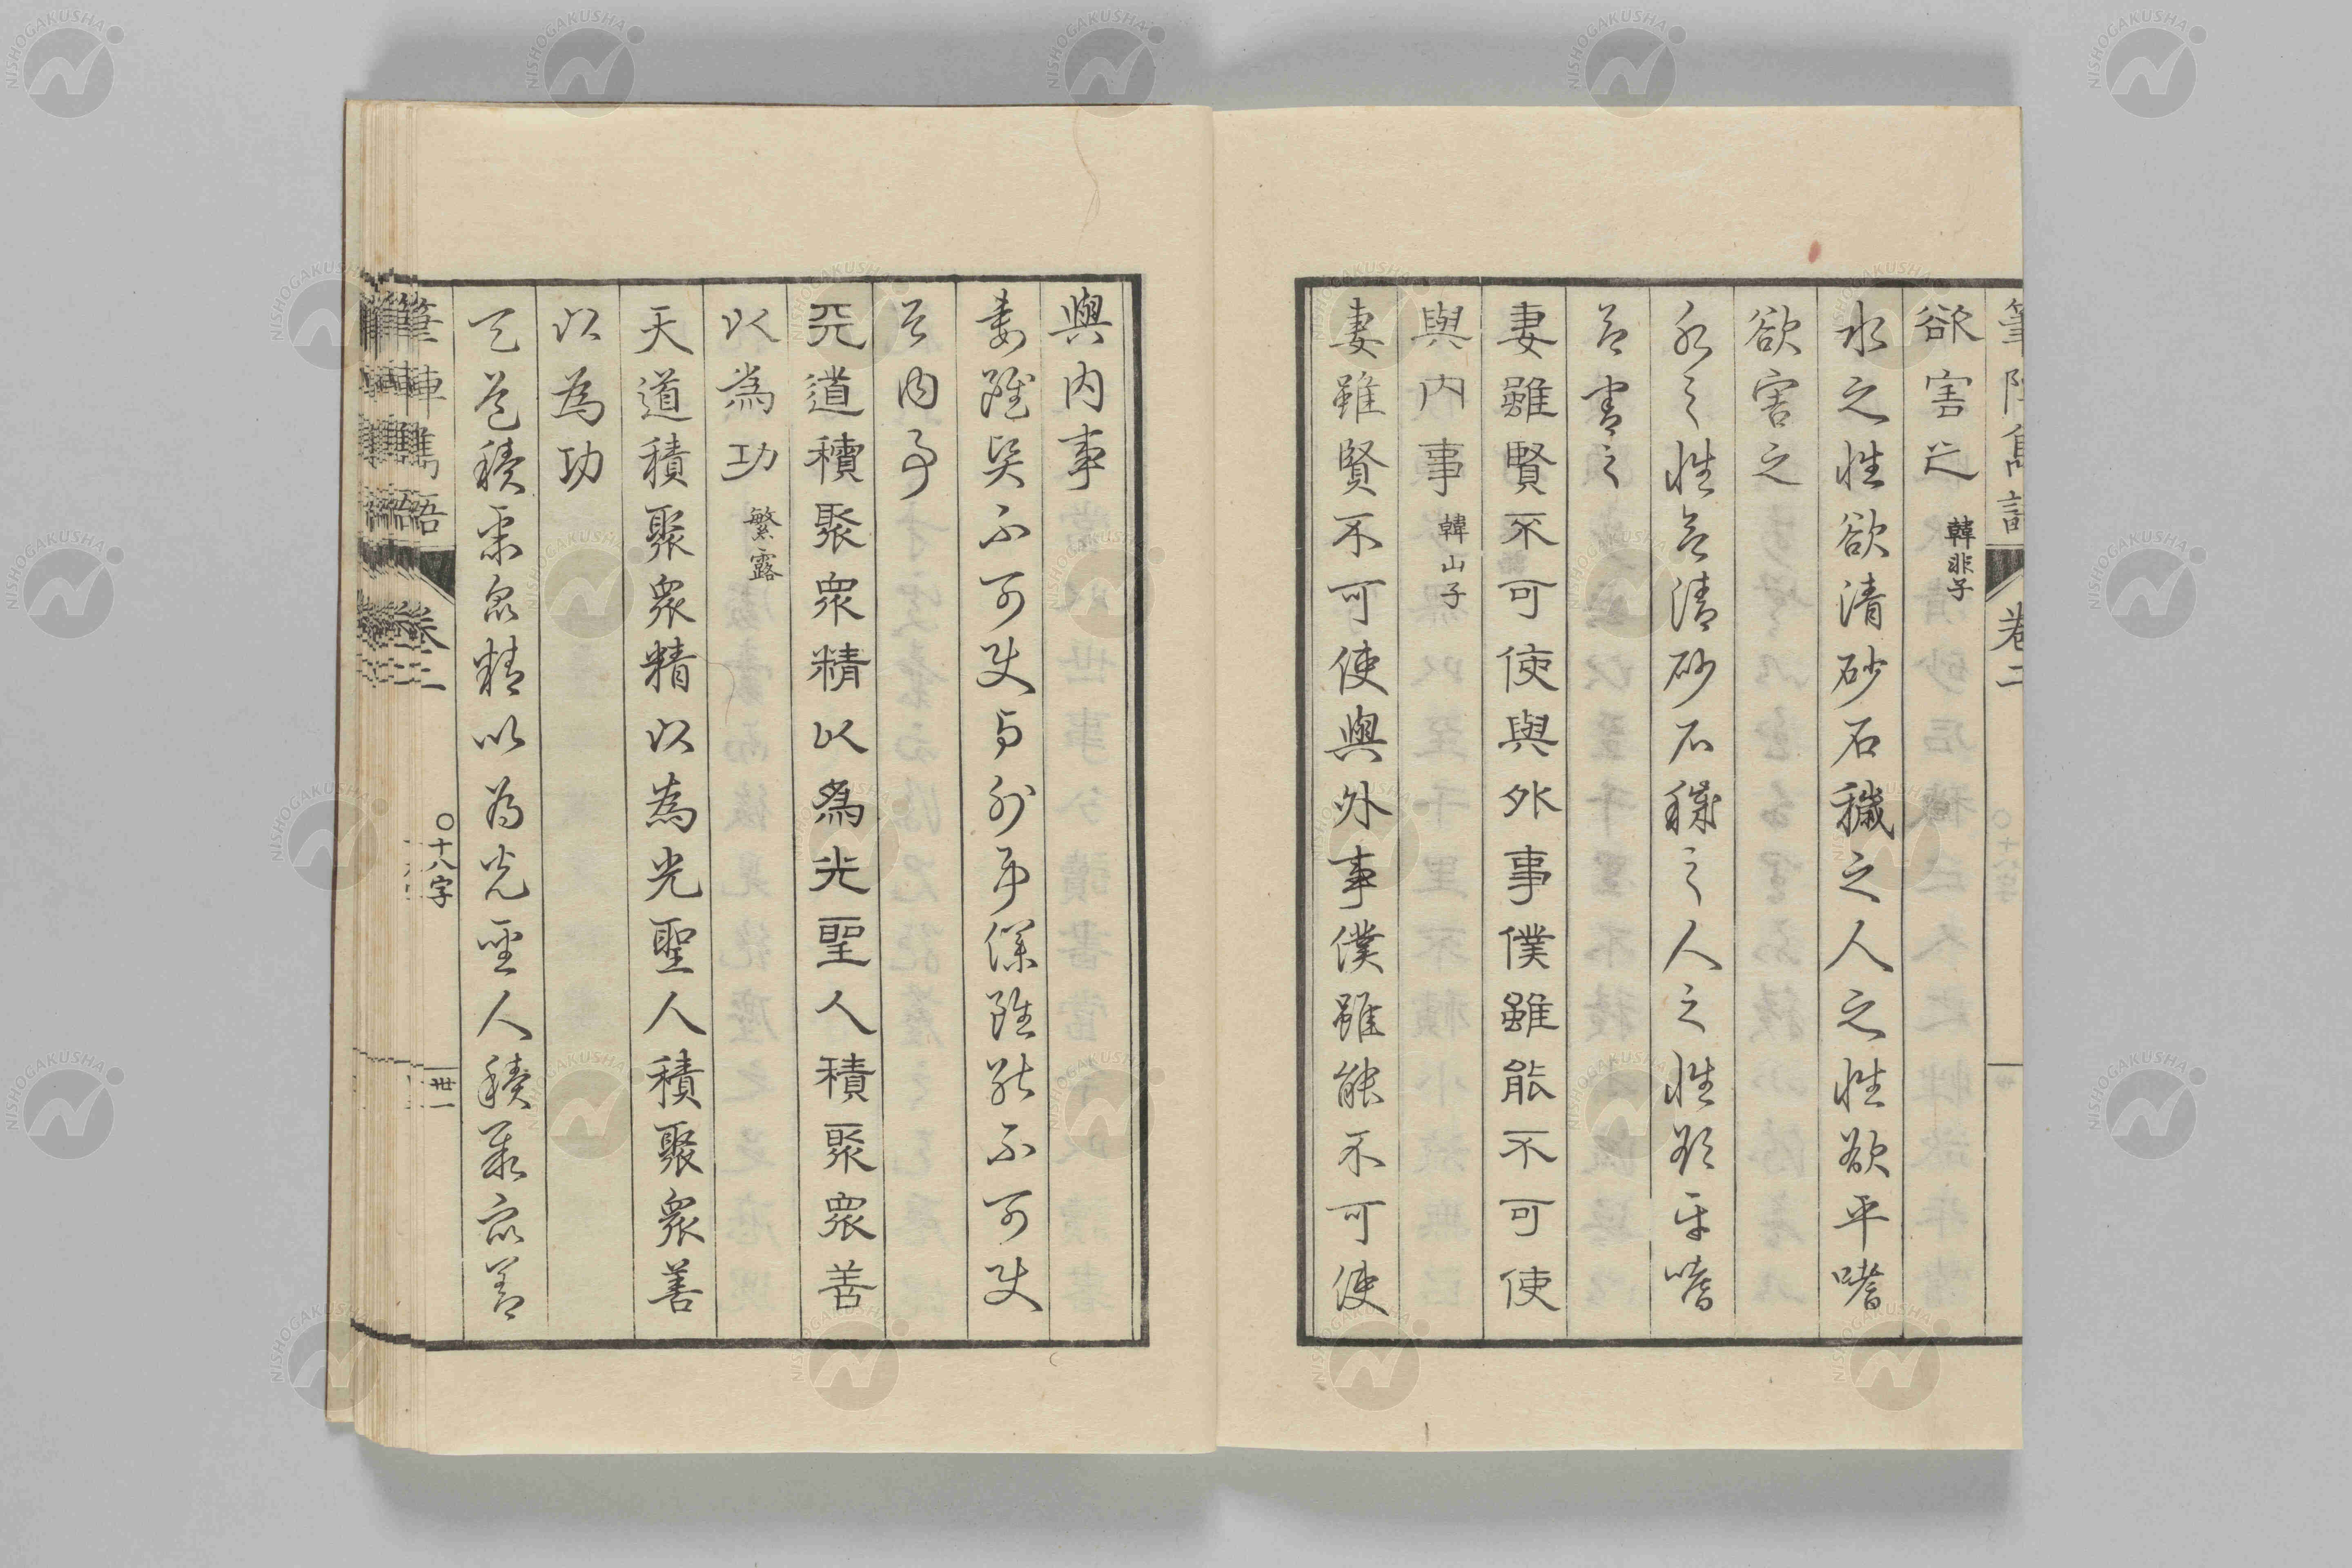 欲害之 韓非子
水之性欲清砂石穢之人之性欲平嗜
欲害之
水之性欲清砂石穢之人之性欲平嗜
欲害之
妻雖賢不可使與外事僕雖能不可使
與內事 韓山子
妻雖賢不可使與外事僕雖能不可使
與内事
妻雖賢不可使与外事僕雖能不可使
与内事
天道積聚衆精以為光聖人積聚衆善
以為功 繁露
天道積聚衆精以為光聖人積聚衆善
以為功
天道積聚衆精以為光聖人積聚衆善
筆陣雋語 卷二 〇十八字 丗一
NISHOGAKUSHA